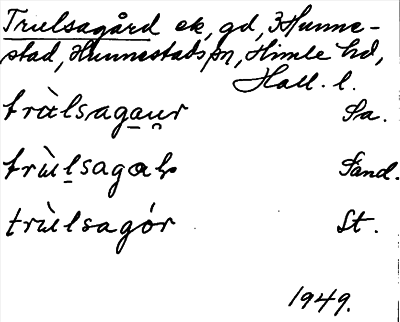 Trulsagård ek, gd, 3 Hunne-
stad, Hunnestads sn, Himle hd,
Hall. l.
trùlsagaur Sa.
trùlsagaɦ Sand.
trùlsagór St.
1949.